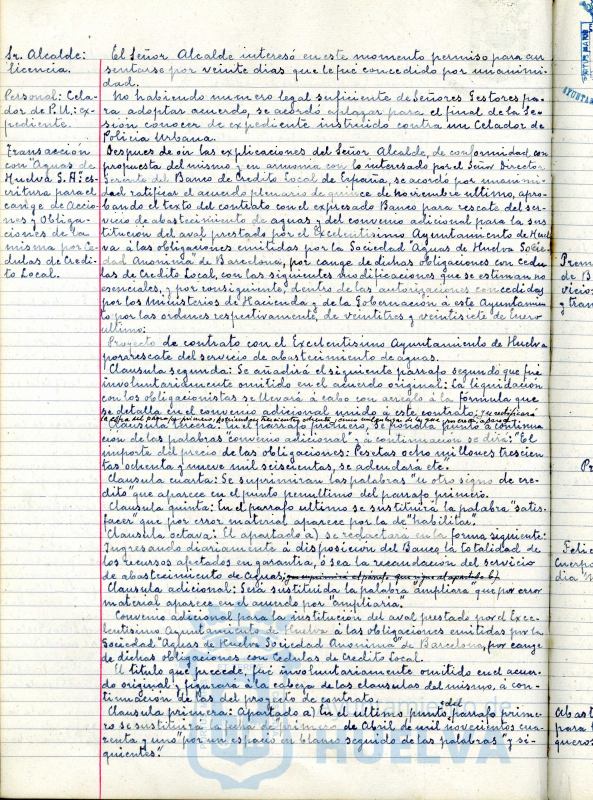 Sr. Alcalde:
licencia.
Personal: Cela-
dor de P. U.; ex-
pediente.
Transacción
con "Aguas de
Huelva S. A": es-
critura para el
cange de Accio-
nes y Obliga-
ciones de la
misma por Ce-
dulas de Credi-
to Local.
El Señor Alcalde interesó en este momento permiso para au
sentarse por veinte dias que le fué concedido por unanimi-
dad.
No habiendo numero legal suficiente de Señores Gestores pa-
ra adoptar acuerdo, se acordó aplazar para el final de la Se-
sión conocer de expediente instruido contra un Celador de
Policia Urbana.
Despues de oir las explicaciones del Señor Alcalde, de conformidad con
propuesta del mismo y en armonia con lo interesado por el Señor Director
Gerente del Banco de Credito Local de España, se acordó por unanimi-
dad ratificar el acuerdo plenario de quince de noviembre ultimo, apro-
bando el texto del contrato con el expresado Banco para rescate del ser-
vicio de abastecimiento de aguas y del convenio adicional para la sus
titución del aval prestado por el Excelentisimo Ayuntamiento de Huel
va á las obligaciones emitidas por la Sociedad "Aguas de Huelva Socie
dad Anonima" de Barcelona, por cange de dichas obligaciones con Cedu
las de Credito Local, con las siguientes modificaciones que se estiman no
esenciales, y por consiguiente, dentro de las autorizaciones concedidas
por los Ministerios de Hacienda y de la Gobernación á este Ayuntamien
to por las ordenes respectivamente, de veintitres y veintisiete de Enero
ultimo:
Proyecto de contrato con el Excelentisimo Ayuntamiento de Huelva
para rescate del servicio de abastecimiento de aguas.
Clausula segunda: Se añadirá el siguiente parrafo segundo que fué
involuntariamente omitido en el acuerdo original: La liquidación
con los obligacionistas se llevará á cabo con arreglo á la formula que
se detalla en el convenio adicional unido á este contrato; se rectificará
la cifra del parrafo primero,
Clausula tercera: En el parrafo primero, se pondrá punto á continua
ción de las palabras "convenio adicional" y á continuación se dirá: "El
importe del precio de las obligaciones: Pesetas ocho millones trescien
tas ochenta y nueve mil seiscientas, se adeudará etc".
Clausula cuarta: Se suprimiran las palabras "u otro signo de cre-
dito" que aparece en el punto penultimo del parrafo primero.
Clausula quinta: En el parrafo ultimo se sustituirá la palabra "satis-
facer" que por error material aparece por la de "habilitar".
Clausula octava: El apartado a) se redactará en la forma siguiente:
Ingresando diariamente á disposición del Banco la totalidad de
los recursos afectados en garantia, ó sea la recaudación del servicio
de abastecimiento de Aguas; que suprimirá el parrafo que sigue al apartado b).
Clausula adicional: Será sustituida la palabra ampliara que por error
material aparece en el acuerdo por "ampliaria.
Convenio adicional para la institución del aval prestado por el Exce-
lentisimo Ayuntamiento de Huelva á las obligaciones emitidas por la
Sociedad "Aguas de Huelva Sociedad Anonima" de Barcelona, por cange
de dichas obligaciones con Cedulas de Credito Local.
El titulo que precede, fué involuntariamente omitido en el acuer-
do original y figurará á la cabeza de las clausulas del mismo, á con-
tinuación de las del proyecto de contrato.
Clausula primera: Apartado a) En el ultimo punto, del parrafo prime-
ro se sustituirá la fecha de "primero de Abril de mil novecientos cua-
renta y uno" por un espacio en blanco seguido de las palabras "y si-
guientes".
Ayuntamiento de
HUELVA